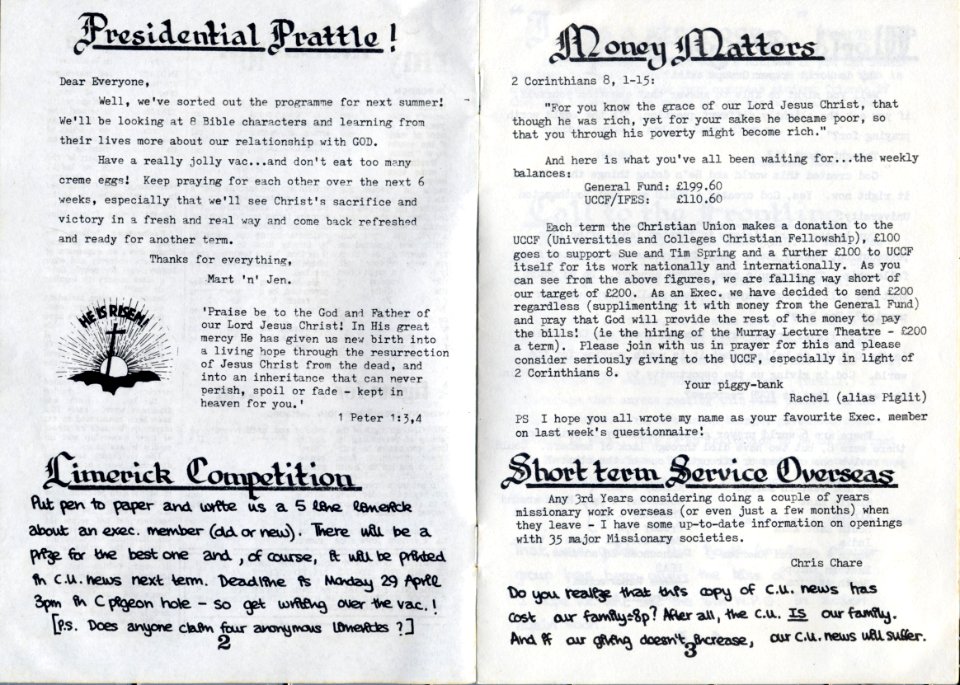 Presidential Prattle!
Dear Everyone,
Well, we've sorted out the programme for next summer!
We'll be looking at 8 Bible characters and learning from
their lives more about our relationship with GOD.
Have a really jolly vac...and don't eat too many
creme eggs! Keep praying for each other over the next 6
weeks, especially that we'll see Christ's sacrifice and
victory in a fresh and real way and come back refreshed
and ready for another term.
Thanks for everything,
Mart 'n' Jen.
HE IS RISEN!
'Praise be to the God and Father of
our Lord Jesus Christ! In His great
mercy He has given us new birth into
a living hope through the resurrection
of Jesus Christ from the dead, and
into an inheritance that can never
perish, spoil or fade - kept in
heaven for you.'
1 Peter 1:3,4
Limerick Competition
Put pen to paper and write us a 5 line limerick
about an exec. member (old or new). There will be a
prize for the best one and, of course, it will be printed
in C.U. news next term. Deadline is Monday 29 April
3pm in C pigeon hole - so get writing over the vac.!
[P.S. Does anyone claim four anonymous limericks?]
2
Money Matters
2 Corinthians 8, 1-15:
"For you know the grace of our Lord Jesus Christ, that
though he was rich, yet for your sakes he became poor, so
that you through his poverty might become rich."
And here is what you've all been waiting for...the weekly
balances:
General Fund: £199.60
UCCF/IFES: £110.60
Each term the Christian Union makes a donation to the
UCCF (Universities and Colleges Christian Fellowship), £100
goes to support Sue and Tim Spring and a further £100 to UCCF
itself for its work nationally and internationally. As you
can see from the above figures, we are falling way short of
our target of £200. As an Exec. we have decided to send £200
regardless (supplimenting it with money from the General Fund)
and pray that God will provide the rest of the money to pay
the bills! (ie the hiring of the Murray Lecture Theatre - £200
a term). Please join with us in prayer for this and please
consider seriously giving to the UCCF, especially in light of
2 Corinthians 8.
Your piggy-bank
Rachel (alias Piglit)
PS I hope you all wrote my name as your favourite Exec. member
on last week's questionnaire!
Short term Service Overseas
Any 3rd Years considering doing a couple of years
missionary work overseas (or even just a few months) when
they leave - I have some up-to-date information on openings
with 35 major Missionary societies.
Chris Chare
Do you realize that this copy of C.U. news has
cost our family=8p? After all, the C.U. IS our family.
And if our giving doesn't increase, our C.U. news will suffer.
3